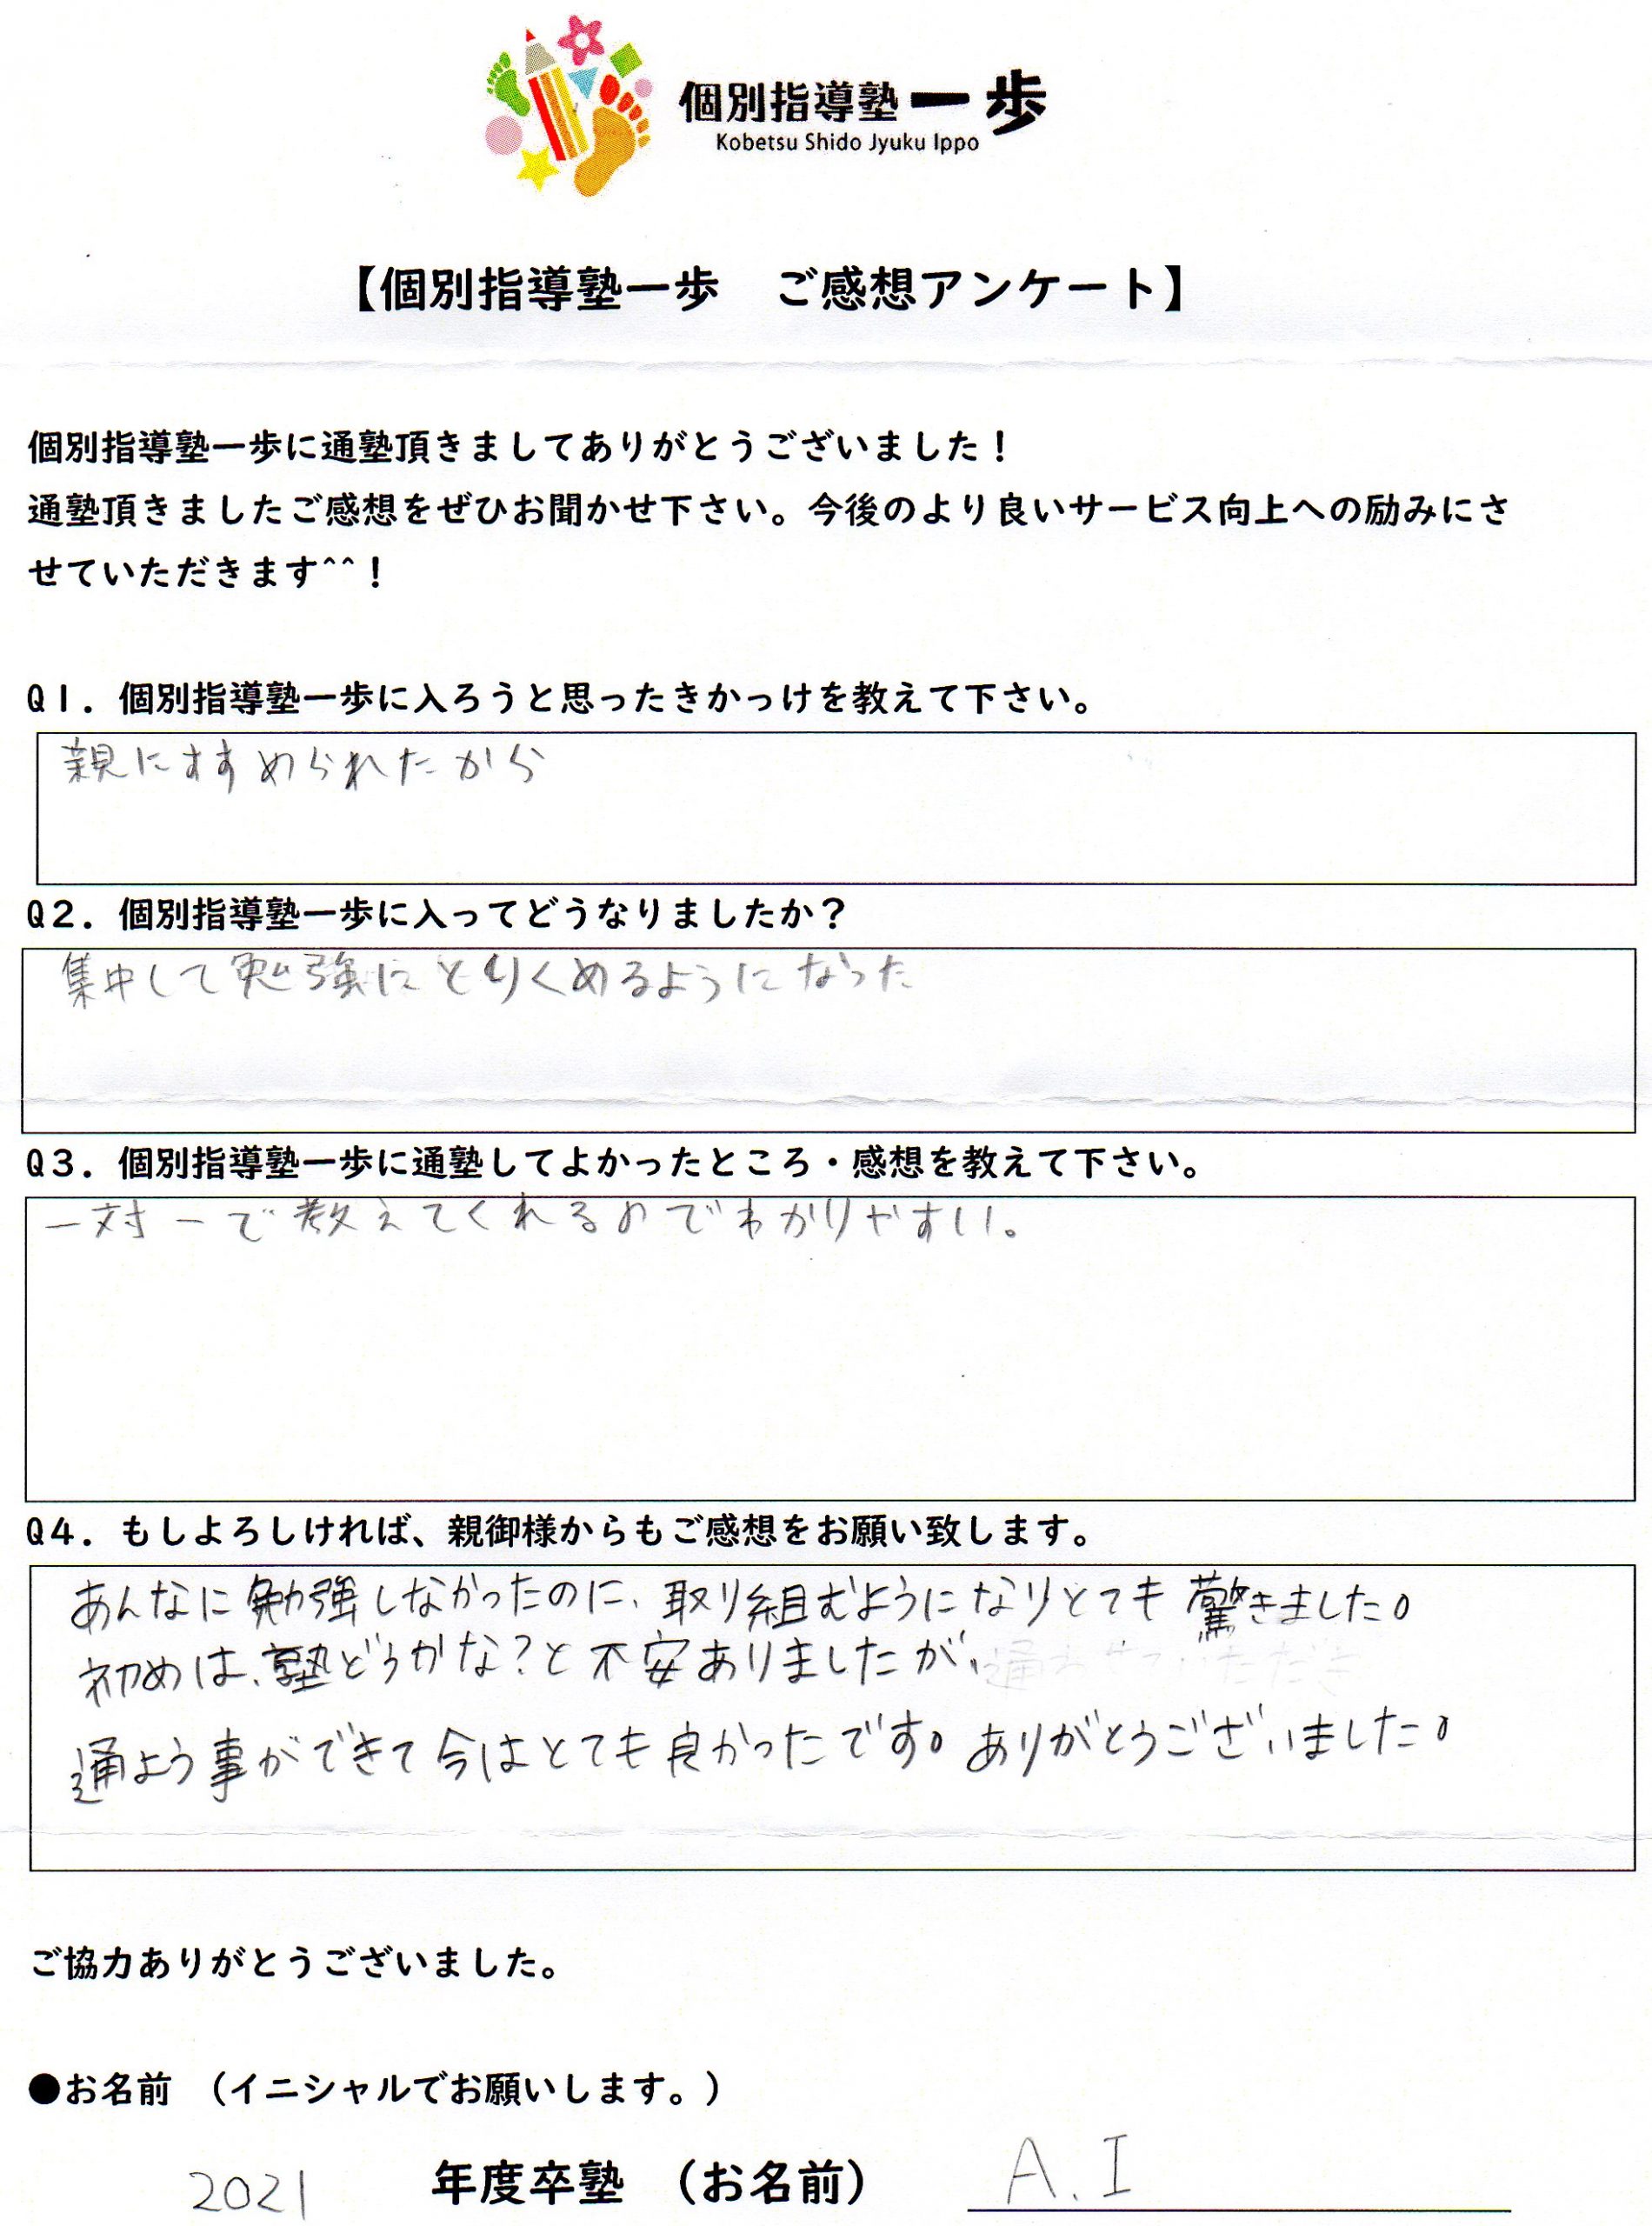 個別指導塾一歩
Kobetsu Shido Jyuku Ippo
【個別指導塾一歩　ご感想アンケート】
個別指導塾一歩に通塾頂きましてありがとうございました！
通塾頂きましたご感想をぜひお聞かせ下さい。今後のより良いサービス向上への励みにさ
せていただきます^^！
Q1．個別指導塾一歩に入ろうと思ったきかっけを教えて下さい。
親にすすめられたから
Q2．個別指導塾一歩に入ってどうなりましたか？
集中して勉強にとりくめるようになった
Q3．個別指導塾一歩に通塾してよかったところ・感想を教えて下さい。
一対一で教えてくれるのでわかりやすい。
Q4．もしよろしければ、親御様からもご感想をお願い致します。
あんなに勉強しなかったのに、取り組むようになりとても驚きました。
初めは、塾どうかな？と不安ありましたが、
通よう事ができて今はとても良かったです。ありがとうございました。
ご協力ありがとうございました。
●お名前　（イニシャルでお願いします。）
2021 年度卒塾　（お名前） A.I